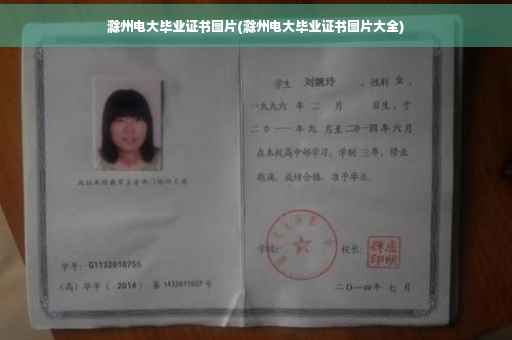 滁州电大毕业证书图片(滁州电大毕业证书图片大全)
学生 刘婉玲 , 性别 女 ,
一九九六 年 二 月 日生, 于
二〇一一年九 月至二〇一四年六月
在本校高中部学习, 学制 三年, 修业
期满, 成绩合格, 准予毕业。
学号: G1132010755
(高) 毕字 ( 2014 ) 第 1432011027 号
学校:
校长:
二〇一四年 七 月